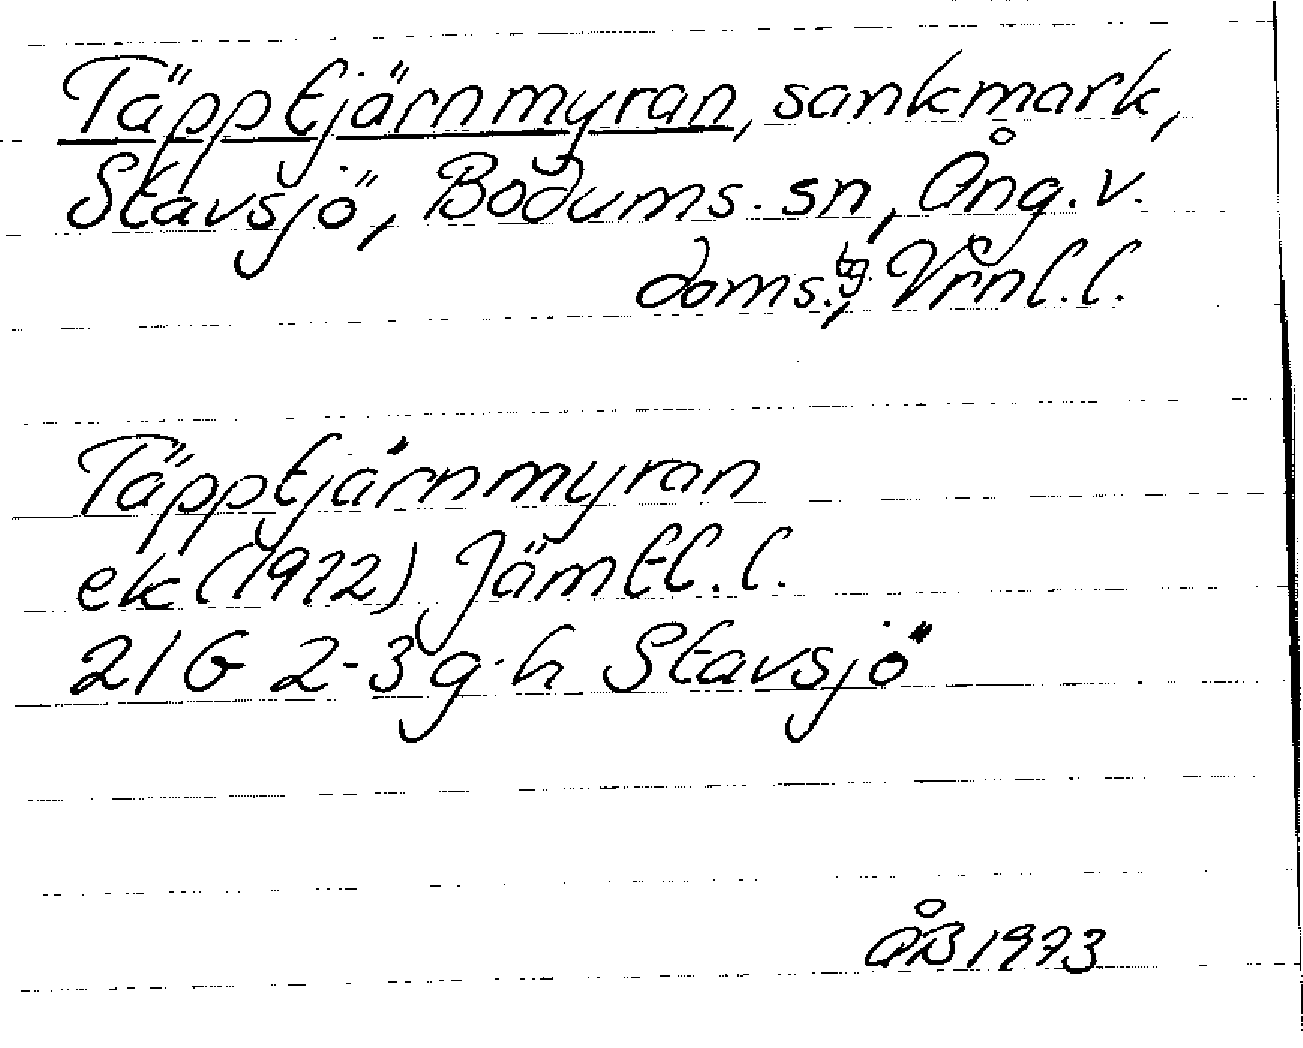 Täpptjärnmyran, sankmark,
Stavsjö, Bodums. sn, Ång. v.
doms.bg, Vrnl. l.
Täpptjärnmyran
ek (1972) Jämtl. l.
21 G 2-3 g-h Stavsjö
ÅB 1973